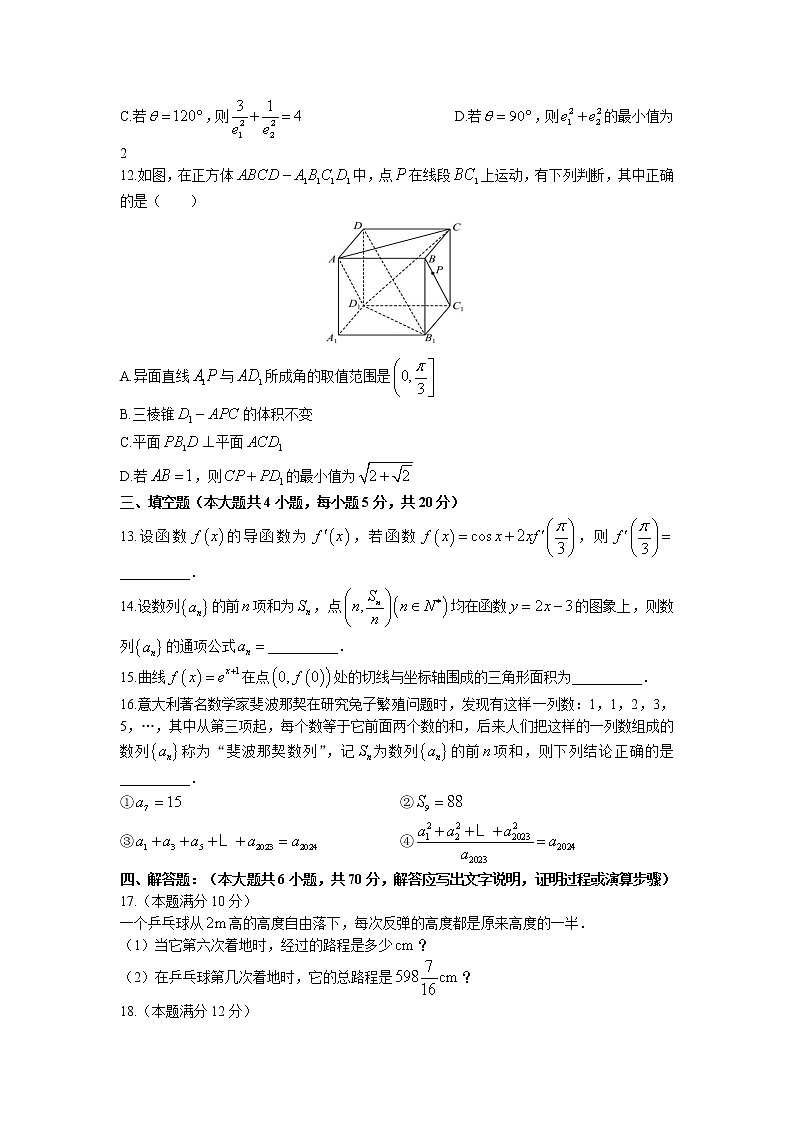 C.若θ=120°,则3/e₁²+1/e₂²=4 D.若θ=90°,则e₁²+e₂²的最小值为
2
12.如图,在正方体ABCD−A₁B₁C₁D₁中,点P在线段BC₁上运动,有下列判断,其中正确
的是( )
D C
A B
P
D₁ C₁
A₁ B₁
A.异面直线A₁P与AD₁所成角的取值范围是(0,π/3]
B.三棱锥D₁−APC的体积不变
C.平面PB₁D⊥平面ACD₁
D.若AB=1,则CP+PD₁的最小值为√(2+√2)
三、填空题(本大题共4小题,每小题5分,共20分)
13.设函数f(x)的导函数为f′(x),若函数f(x)=cos x+2xf′(π/3),则f′(π/3)=
__________.
14.设数列{aₙ}的前n项和为Sₙ,点(n,Sₙ/n)(n∈N*)均在函数y=2x−3的图象上,则数
列{aₙ}的通项公式aₙ=__________.
15.曲线f(x)=eˣ⁺¹在点(0,f(0))处的切线与坐标轴围成的三角形面积为__________.
16.意大利著名数学家斐波那契在研究兔子繁殖问题时,发现有这样一列数:1,1,2,3,
5,…,其中从第三项起,每个数等于它前面两个数的和,后来人们把这样的一列数组成的
数列{aₙ}称为“斐波那契数列”,记Sₙ为数列{aₙ}的前n项和,则下列结论正确的是
__________.
①a₇=15 ②S₉=88
③a₁+a₃+a₅+L +a₂₀₂₃=a₂₀₂₄ ④(a₁²+a₂²+L +a₂₀₂₃²)/a₂₀₂₃=a₂₀₂₄
四、解答题:(本大题共6小题,共70分,解答应写出文字说明,证明过程或演算步骤)
17.(本题满分10分)
一个乒乓球从2m高的高度自由落下,每次反弹的高度都是原来高度的一半.
(1)当它第六次着地时,经过的路程是多少cm?
(2)在乒乓球第几次着地时,它的总路程是598 7/16cm?
18.(本题满分12分)